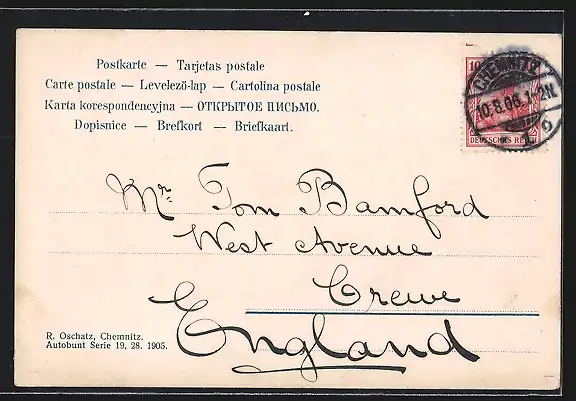 Postkarte — Tarjetas postale
Carte postale — Levelező-lap — Cartolina postale
Karta korespondencyjna — ОТКРЫТОЕ ПИСЬМО.
Dopisnice — Brefkort — Briefkaart.
10
CHEMNITZ
10.8.06.1-2N.
DEUTSCHES REICH
Mr. Tom Bamford
West Avenue
Crewe
England
R. Oschatz, Chemnitz.
Autobunt Serie 19, 28. 1905.